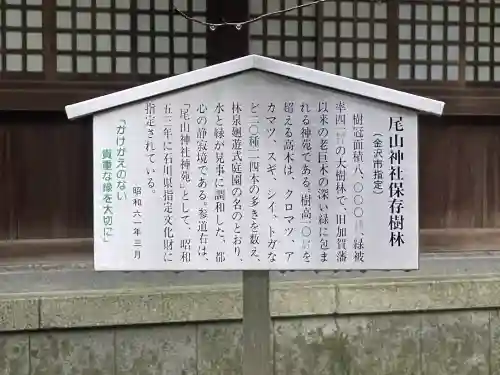 尾山神社保存樹林
(金沢市指定)
樹冠面積八、〇〇〇 、緑被
率四 の大樹林で、旧加賀藩
以来の老巨木の深い緑に包ま
れる神苑である。樹高一〇 を
超える高木は、クロマツ、ア
カマツ、スギ、シイ、トガな
ど二〇種二二四本の多きを数え、
林泉廻遊式庭園の名のとおり、
水と緑が見事に調和した、都
心の静寂境である。参道右は、
「尾山神社神苑」として、昭和
五三年に石川県指定文化財に
指定されている。
昭和六一年三月
「かけがえのない
貴重な緑を大切に」